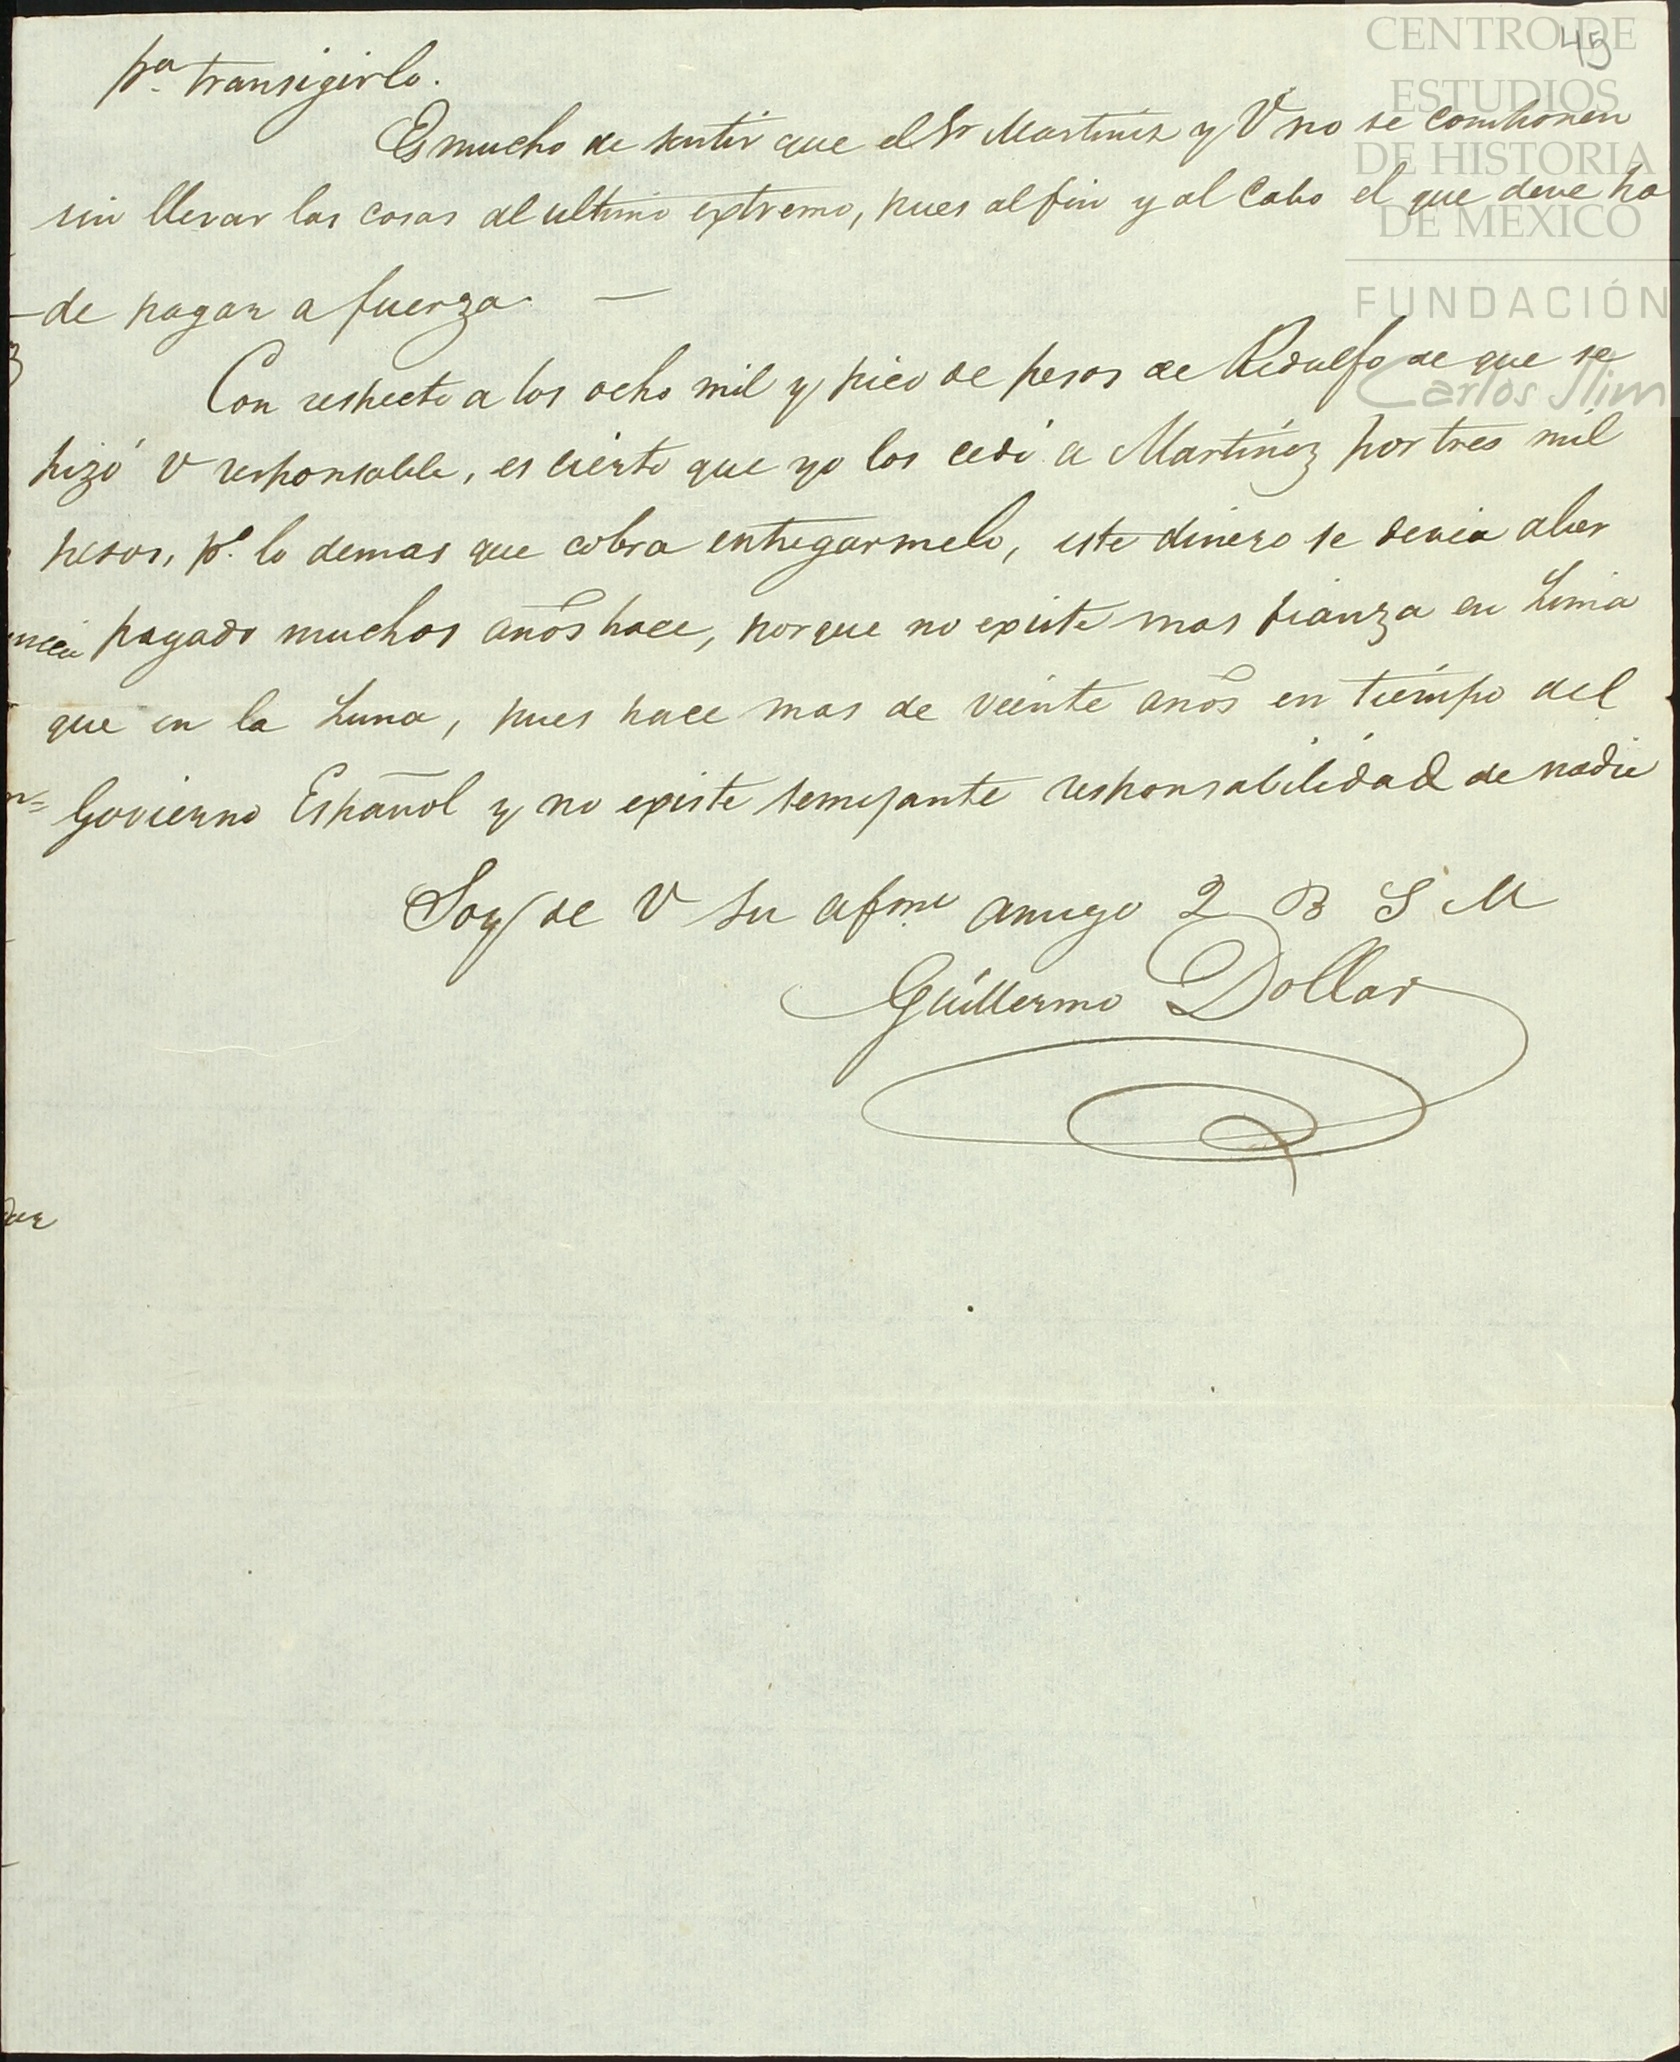 45
CENTRO DE
ESTUDIOS
DE HISTORIA
DE MEXICO
FUNDACIÓN
Carlos Slim
pa. transigirlo.
Es mucho de sentir que el Sr Martinez y V no se componen
sin llevar las cosas al ultimo extremo, pues al fin y al Cabo el que deve ha
de pagar a fuerza. —
Con respecto a los ocho mil y pico de pesos de Ridulfo de que se
hizó V responsable, es cierto que yo los cedi a Martinez por tres mil
pesos, pa. lo demas que cobra entregarmelo, este dinero se devia aber
pagado muchos años hace, porque no existe mas fianza en Lima
que en la Luna, pues hace mas de veinte años en tiempo del
Govierno Español y no existe semejante responsabilidad de nadie
Soy de V su afmo. amigo Q B S M
Guillermo Dollar